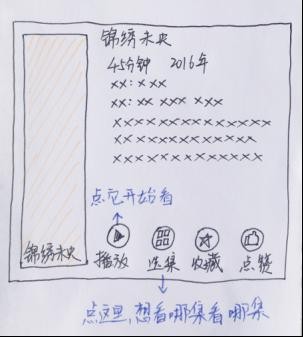 锦绣未央
45分钟 2016年
xx:xxx
xx:xx xxx xxx
xxxxxxxxxxxxx
xxxxxxxxxxxx
xxxxxxxxxxxx
点它开始看
锦绣未央
播放 选集 收藏 点赞
点这里,想看哪集看哪集